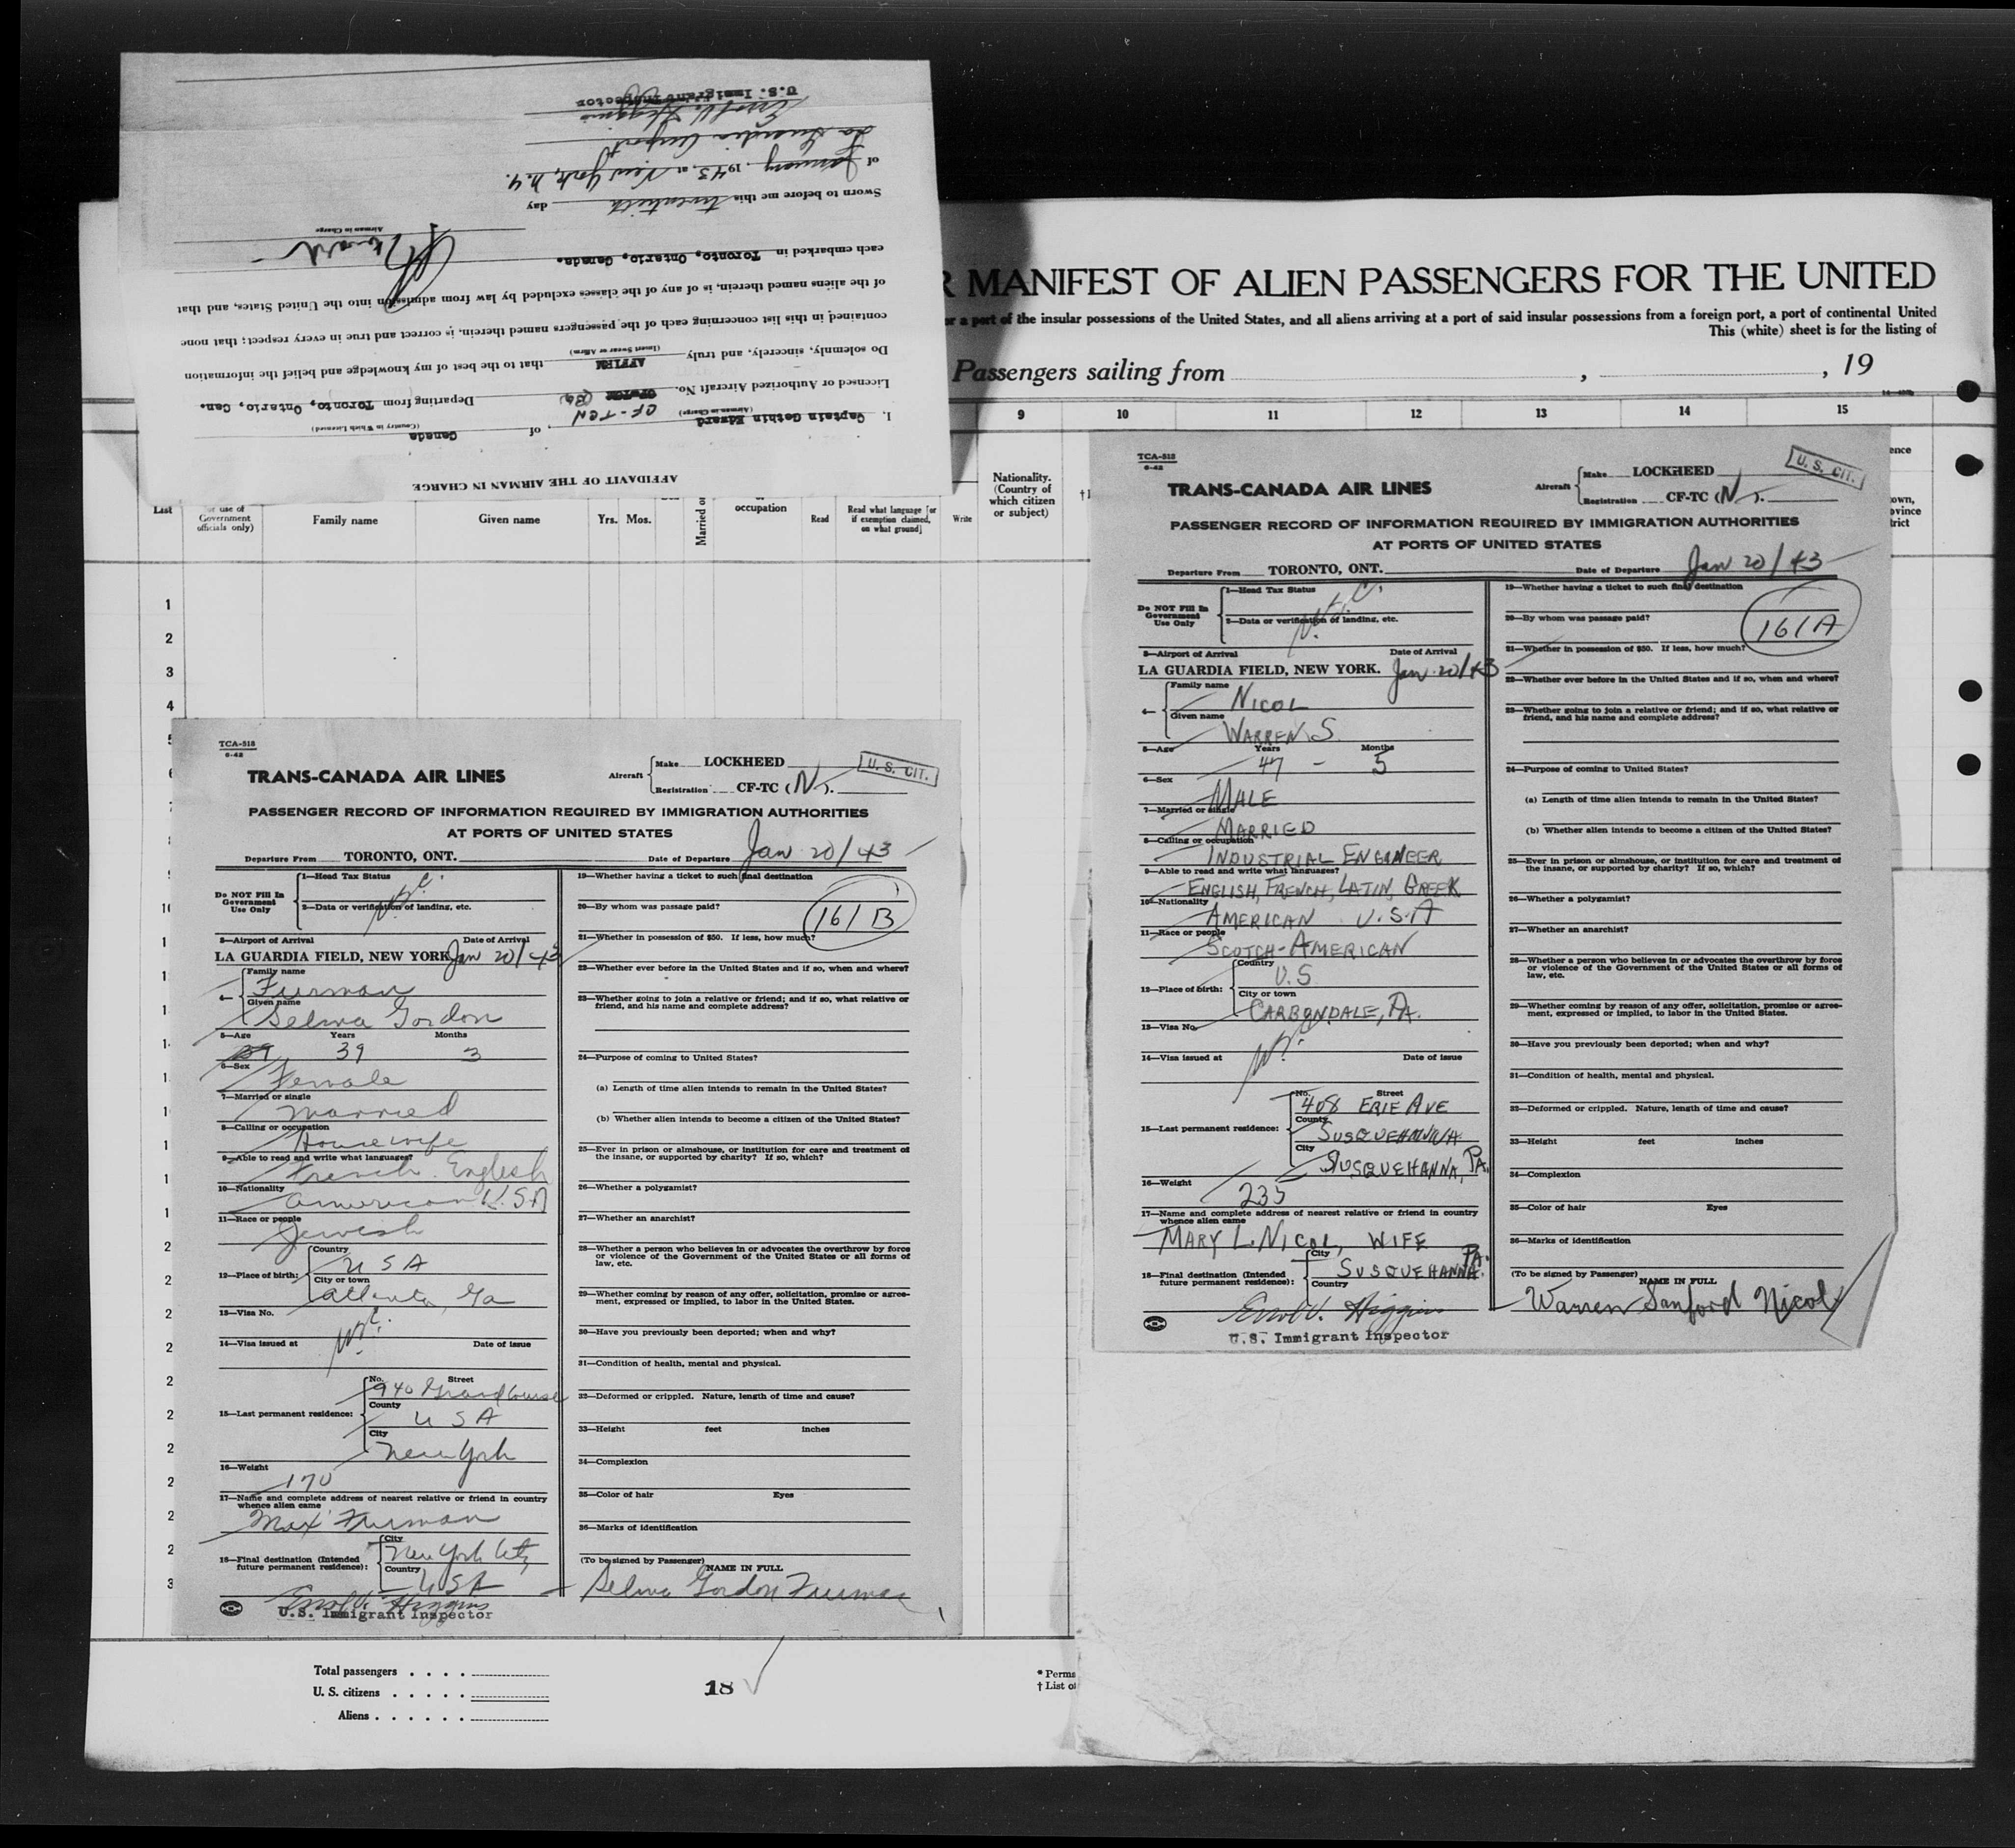 AFFIDAVIT OF THE AIRMAN IN CHARGE
I, Captain Gethin Edward, of Canada
(Airman in Charge) (Country in Which Licensed)
CF-TCN
Licensed or Authorized Aircraft No. Departing from Toronto, Ontario, Can.
Do solemnly, sincerely, and truly AFFIRM that to the best of my knowledge and belief the information
(Insert Swear or Affirm)
contained in this list concerning each of the passengers named therein, is correct and true in every respect; that none
of the aliens named therein, is of any of the classes excluded by law from admission into the United States, and that
each embarked in Toronto, Ontario, Canada.
Airman in Charge
Sworn to before me this twentieth day
of January, 1943, at New York, N.Y.
La Guardia Airport
Errol V. Higgins
U.S. Immigrant Inspector
R MANIFEST OF ALIEN PASSENGERS FOR THE UNITED
or a port of the insular possessions of the United States, and all aliens arriving at a port of said insular possessions from a foreign port, a port of continental United
This (white) sheet is for the listing of
Passengers sailing from , , 19
9 10 11 12 13 14 15
List
use of Government officials only)
Family name
Given name
Yrs. Mos.
Married or
occupation
Read
Read what language [or if exemption claimed, on what ground]
Write
Nationality. (Country of which citizen or subject)
1
2
3
4
TCA-518
6-42
TRANS-CANADA AIR LINES
Aircraft
Make LOCKHEED
Registration CF-TC (N).
U. S. CIT.
PASSENGER RECORD OF INFORMATION REQUIRED BY IMMIGRATION AUTHORITIES
AT PORTS OF UNITED STATES
Departure From TORONTO, ONT.
Date of Departure Jan 20/43
Do NOT Fill In Government Use Only
1—Head Tax Status
2—Data or verification of landing, etc.
3—Airport of Arrival Date of Arrival
LA GUARDIA FIELD, NEW YORK Jan 20/43
4— Family name Furman
Given name Selma Gordon
5—Age Years Months
39 39 3
6—Sex
Female
7—Married or single
Married
8—Calling or occupation
Housewife
9—Able to read and write what languages?
French. English
10—Nationality
American U.S.A
11—Race or people
Jewish
12—Place of birth: Country
U S A
City or town
Atlanta, Ga
13—Visa No.
14—Visa issued at Date of issue
15—Last permanent residence: No. Street
940 Grand Course
County
U S A
City
New York
16—Weight
170
17—Name and complete address of nearest relative or friend in country
whence alien came
Max Furman
18—Final destination (Intended future permanent residence): City
New York City
Country
U S A
Errol V. Higgins
U.S. Immigrant Inspector
19—Whether having a ticket to such final destination
161 B
20—By whom was passage paid?
21—Whether in possession of $50. If less, how much?
22—Whether ever before in the United States and if so, when and where?
23—Whether going to join a relative or friend; and if so, what relative or
friend, and his name and complete address?
24—Purpose of coming to United States?
(a) Length of time alien intends to remain in the United States?
(b) Whether alien intends to become a citizen of the United States?
25—Ever in prison or almshouse, or institution for care and treatment of
the insane, or supported by charity? If so, which?
26—Whether a polygamist?
27—Whether an anarchist?
28—Whether a person who believes in or advocates the overthrow by force
or violence of the Government of the United States or all forms of
law, etc.
29—Whether coming by reason of any offer, solicitation, promise or agree-
ment, expressed or implied, to labor in the United States.
30—Have you previously been deported; when and why?
31—Condition of health, mental and physical.
32—Deformed or crippled. Nature, length of time and cause?
33—Height feet inches
34—Complexion
35—Color of hair Eyes
36—Marks of identification
(To be signed by Passenger)
NAME IN FULL
Selma Gordon Furman
TCA-518
6-42
TRANS-CANADA AIR LINES
Aircraft
Make LOCKHEED
Registration CF-TC (N).
U. S. CIT.
PASSENGER RECORD OF INFORMATION REQUIRED BY IMMIGRATION AUTHORITIES
AT PORTS OF UNITED STATES
Departure From TORONTO, ONT.
Date of Departure Jan 20/43
Do NOT Fill In Government Use Only
1—Head Tax Status
2—Data or verification of landing, etc.
3—Airport of Arrival Date of Arrival
LA GUARDIA FIELD, NEW YORK. Jan 20/43
4— Family name
NICOL
Given name
WARREN S.
5—Age Years Months
47 - 5
6—Sex
MALE
7—Married or single
MARRIED
8—Calling or occupation
INDUSTRIAL ENGINEER
9—Able to read and write what languages?
ENGLISH, FRENCH, LATIN, GREEK
10—Nationality
AMERICAN U.S.A
11—Race or people
SCOTCH-AMERICAN
12—Place of birth: Country
U.S
City or town
CARBONDALE, PA.
13—Visa No.
14—Visa issued at Date of issue
15—Last permanent residence: No. Street
408 ERIE AVE
County
SUSQUEHANNA
City
SUSQUEHANNA, PA.
16—Weight
235
17—Name and complete address of nearest relative or friend in country
whence alien came
MARY L. NICOL, WIFE
18—Final destination (Intended future permanent residence): City
SUSQUEHANNA PA.
Country
Errol V. Higgins
U.S. Immigrant Inspector
19—Whether having a ticket to such final destination
161A
20—By whom was passage paid?
21—Whether in possession of $50. If less, how much?
22—Whether ever before in the United States and if so, when and where?
23—Whether going to join a relative or friend; and if so, what relative or
friend, and his name and complete address?
24—Purpose of coming to United States?
(a) Length of time alien intends to remain in the United States?
(b) Whether alien intends to become a citizen of the United States?
25—Ever in prison or almshouse, or institution for care and treatment of
the insane, or supported by charity? If so, which?
26—Whether a polygamist?
27—Whether an anarchist?
28—Whether a person who believes in or advocates the overthrow by force
or violence of the Government of the United States or all forms of
law, etc.
29—Whether coming by reason of any offer, solicitation, promise or agree-
ment, expressed or implied, to labor in the United States.
30—Have you previously been deported; when and why?
31—Condition of health, mental and physical.
32—Deformed or crippled. Nature, length of time and cause?
33—Height feet inches
34—Complexion
35—Color of hair Eyes
36—Marks of identification
(To be signed by Passenger)
NAME IN FULL
Warren Sanford Nicol
Total passengers . . . .
U. S. citizens . . . . .
Aliens . . . . . .
18
* Perma
† List of